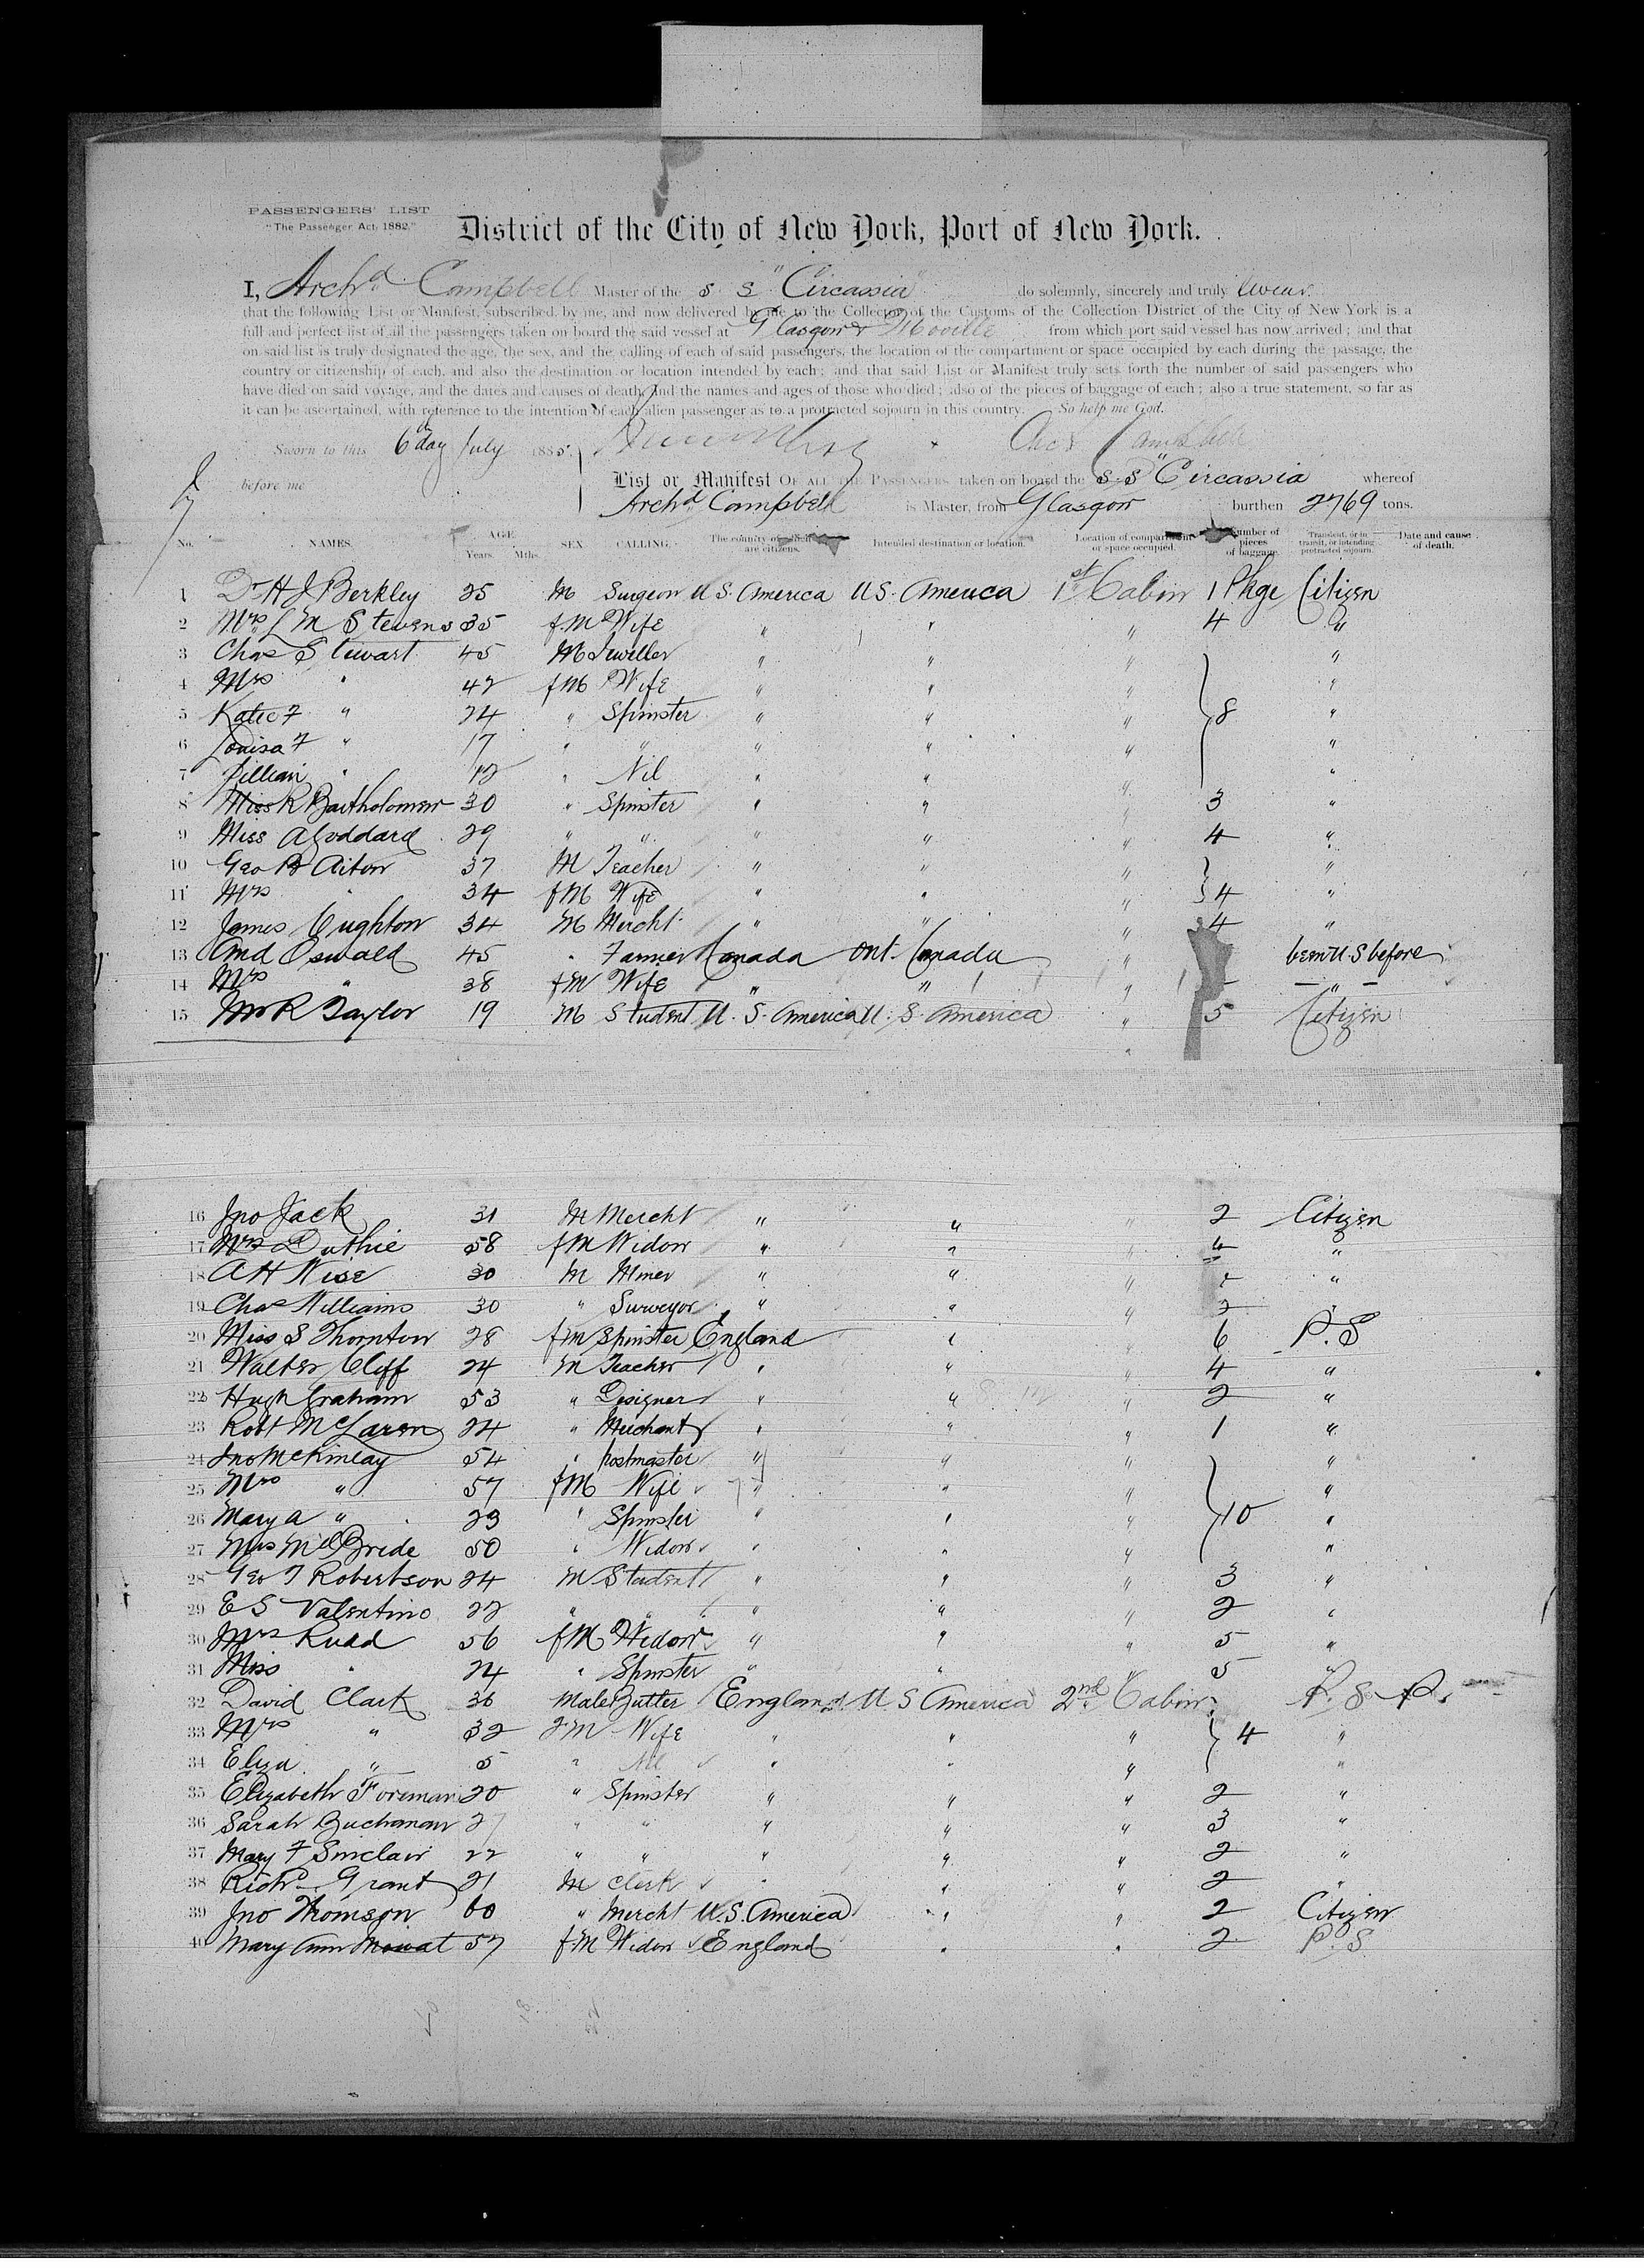 PASSENGERS' LIST
"The Passenger Act, 1882."
District of the City of New York, Port of New York.
I, Archd Campbell Master of the S. S. "Circassia" do solemnly, sincerely and truly swear
that the following List or Manifest, subscribed by me, and now delivered by me to the Collector of the Customs of the Collection District of the City of New York is a
full and perfect list of all the passengers taken on board the said vessel at Glasgow & Moville from which port said vessel has now arrived; and that
on said list is truly designated the age, the sex, and the calling of each of said passengers, the location of the compartment or space occupied by each during the passage, the
country or citizenship of each, and also the destination or location intended by each; and that said List or Manifest truly sets forth the number of said passengers who
have died on said voyage, and the dates and causes of death, and the names and ages of those who died; also of the pieces of baggage of each; also a true statement, so far as
it can be ascertained, with reference to the intention of each alien passenger as to a protracted sojourn in this country. So help me God.
Sworn to this 6th day July 1885. Archd Campbell
before me
List or Manifest OF ALL THE PASSENGERS taken on board the S.S "Circassia whereof
Archd Campbell is Master, from Glasgow burthen 2769 tons.
No. NAMES. AGE Years. Mths. SEX. CALLING. The country of which they are citizens. Intended destination or location. Location of compartment or space occupied. Number of pieces of baggage. Transient, or in transit, or intending protracted sojourn. Date and cause of death.
1 Dr H J Berkley 25 M Surgeon U S. America U S. America 1st Cabin 1 Pkge Citizen
2 Mrs L M Stevens 35 f.M Wife " " " 4 "
3 Chas Stewart 45 M Jeweller " " " "
4 Mrs " 42 fM Wife " " " "
5 Katie F " 24 " Spinster " " " 8 "
6 Louisa F " 17 " " " " " "
7 Lillian " 12 " Nil " " " "
8 Miss R Bartholomew 30 " Spinster " " " 3 "
9 Miss A Goddard 29 " " " " " 4 "
10 Geo B Aiton 37 M Teacher " " " "
11 Mrs " 34 fM Wife " " " 4 "
12 James Cughton 34 M Mercht " " " 4 "
13 And Oswald 45 " Farmer Canada Ont. Canada " been U.S before
14 Mrs " 38 fM Wife " " " "
15 R Taylor 19 M Student U. S. America U. S. America " 5 Citizen
16 Jno Jack 31 M Mercht " " " 2 Citizen
17 Mrs Duthie 58 fM Widow " " " 4 "
18 A H Wise 30 M Miner " " " "
19 Chas Williams 30 " Surveyor " " " 2 "
20 Miss S Thornton 28 fm Spinster England " " 6 P. S
21 Walter Cliff 24 M Teacher " " " 4 "
22 Hugh Graham 53 " Designer " " " 2 "
23 Robt McLaren 24 " Merchant " " " 1 "
24 Jno McKinlay 54 " postmaster " " " "
25 Mrs " 57 fM Wife " " " "
26 Mary A " 23 " Spinster " " " 10 "
27 Mrs McBride 50 " Widow " " " "
28 Geo T Robertson 24 M Student " " " 3 "
29 E S Valentine 22 " " " " " 2 "
30 Mrs Rudd 56 fM Widow " " " 5 "
31 Miss " 24 " Spinster " " " 5 "
32 David Clark 36 Male Butler England U S America 2nd Cabin P. S
33 Mrs " 32 F M Wife " " " 4 "
34 Eliza " 5 " Nil " " " "
35 Elizabeth Foreman 20 " Spinster " " " 2 "
36 Sarah Buchanan 27 " " " " " 3 "
37 Mary F Sinclair 22 " " " " " 2 "
38 Richd Grant 21 M Clerk " " " 2 "
39 Jno Thomson 60 " Mercht U.S. America " " 2 Citizen
40 Mary Ann Mowat 57 f.M Widow England " " 2 P. S.